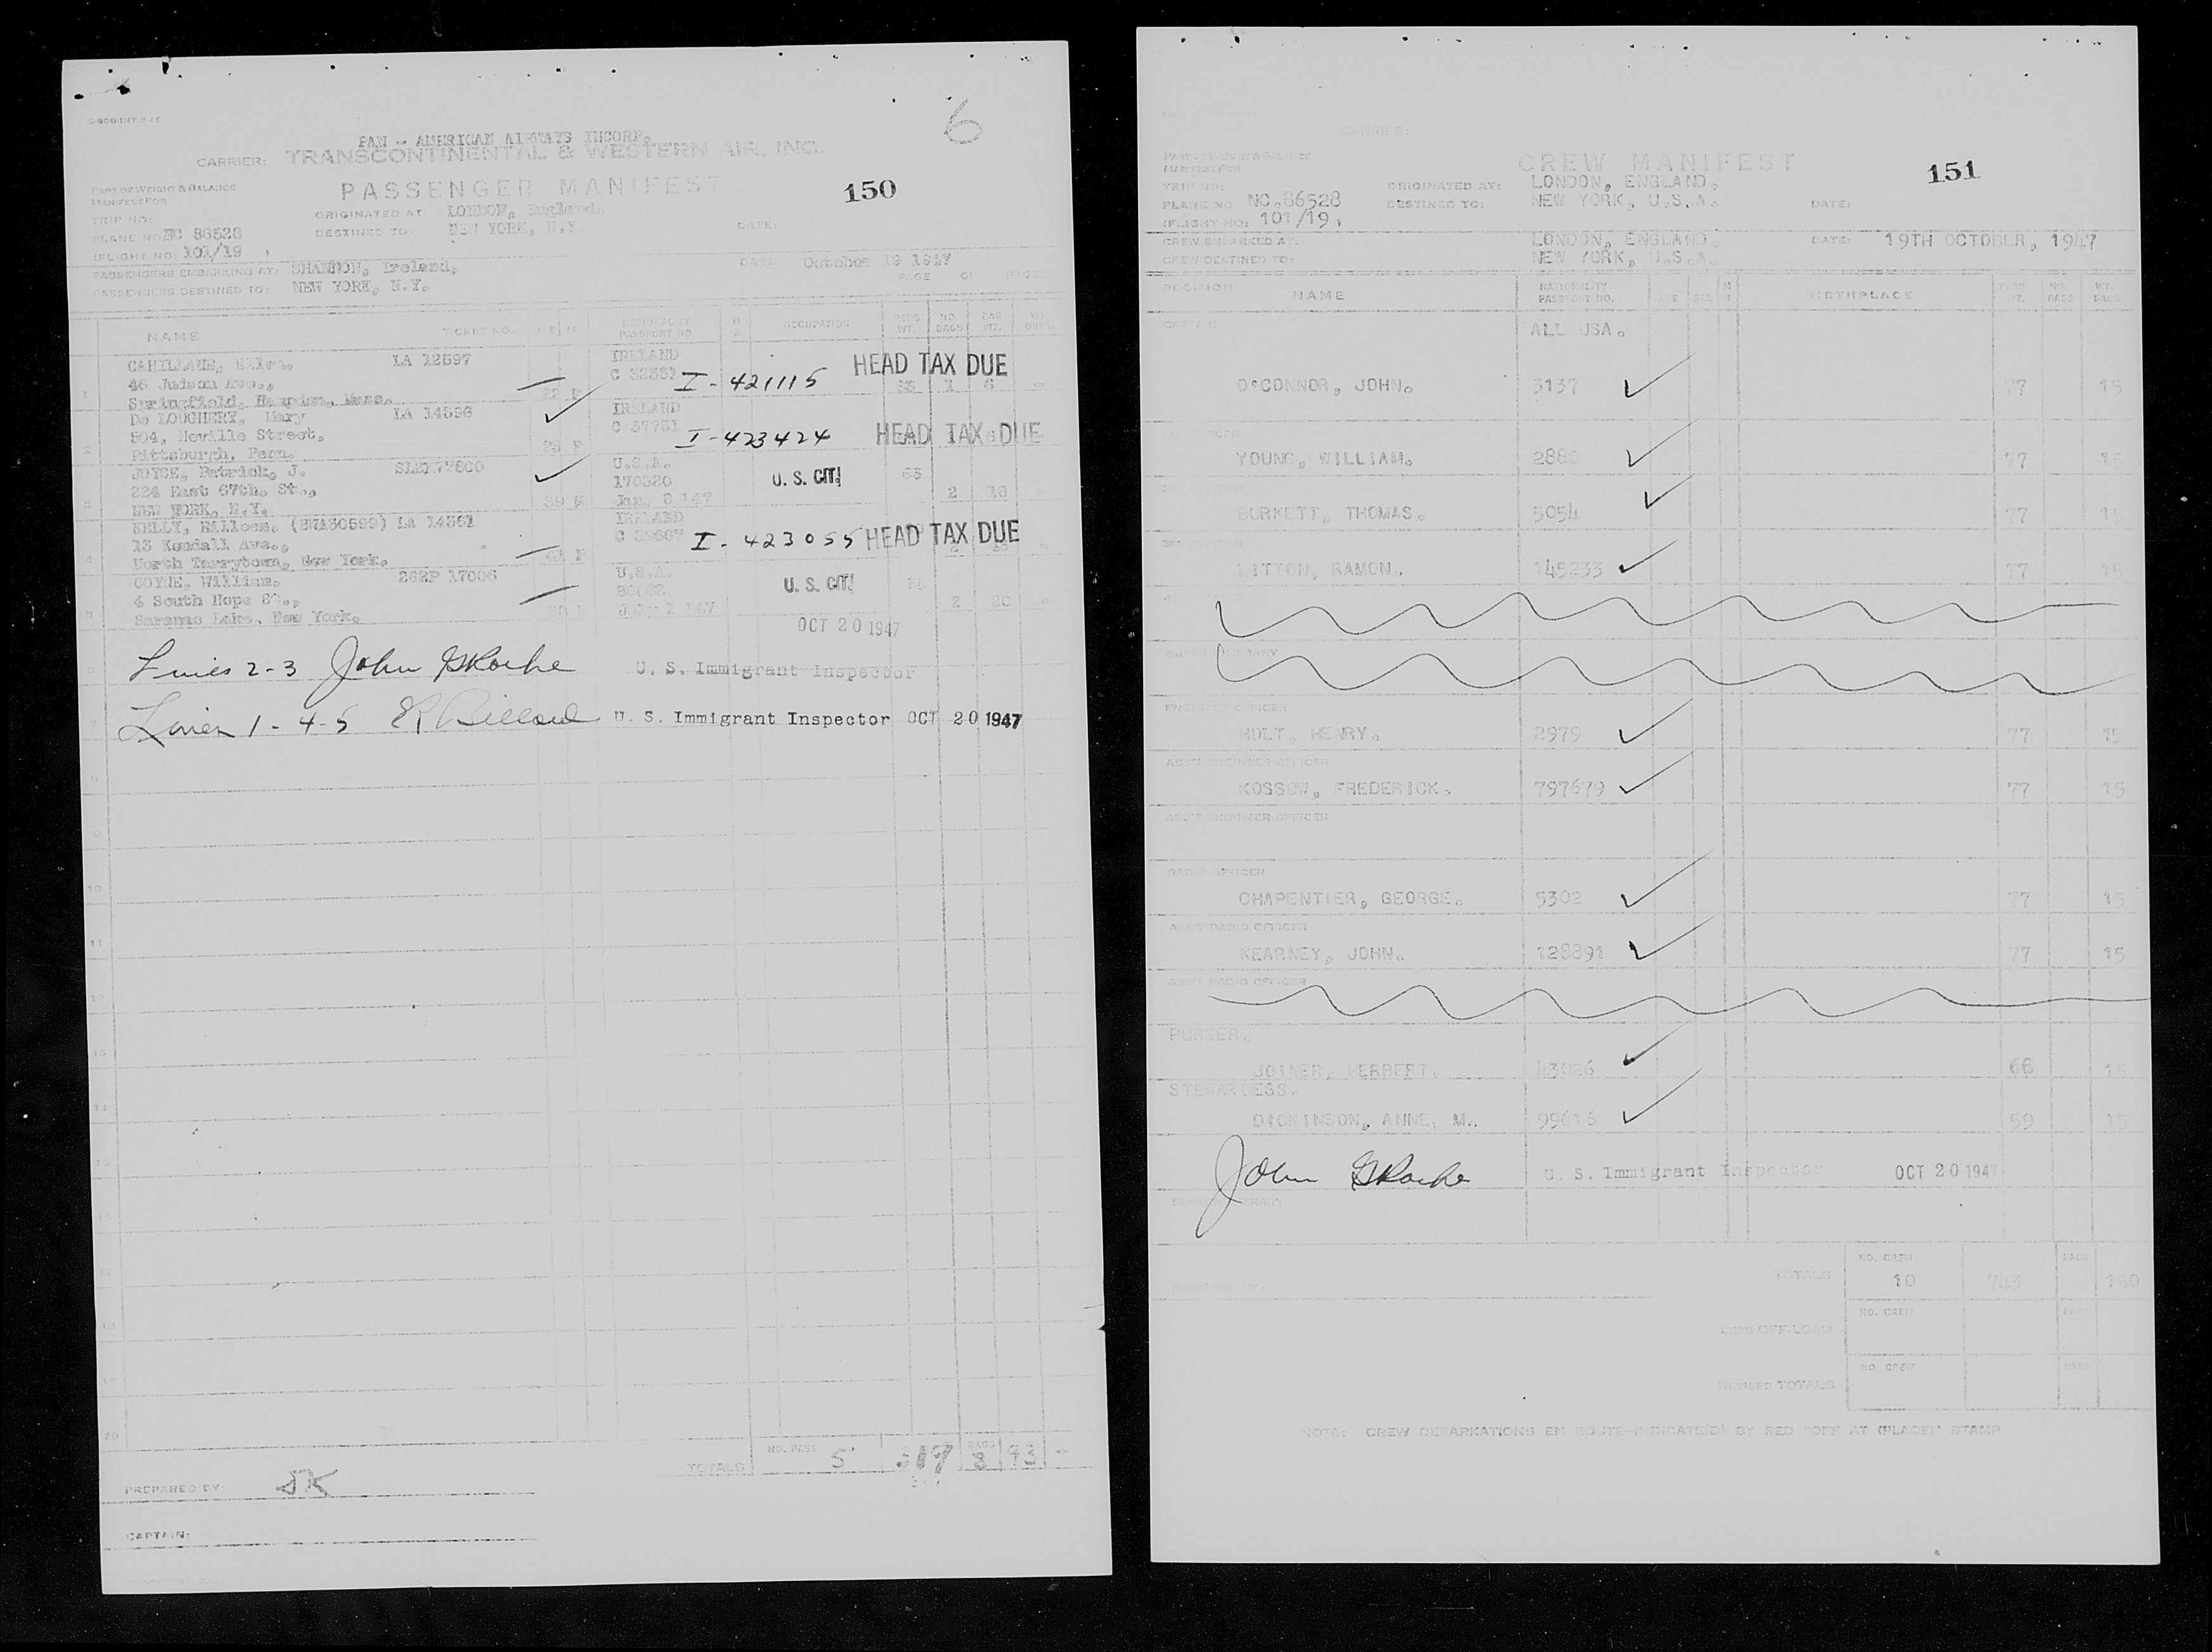 6
PAN - AMERICAN AIRWAYS INCORP.
CARRIER: TRANSCONTINENTAL & WESTERN AIR, INC.
PART OF WEIGHT & BALANCE
MANIFEST FOR
PASSENGER MANIFEST
150
TRIP NO:
ORIGINATED AT LONDON, England.
PLANE NO NC 86528
DESTINED TO: NEW YORK, N.Y.
DATE:
(FLIGHT NO: 101/19
PASSENGERS EMBARKING AT: SHANNON, Ireland,
DATE: October 19 1947
PAGE OF PAGES
PASSENGERS DESTINED TO: NEW YORK, N.Y.
NAME TICKET NO. NATIONALITY PASSPORT NO. OCCUPATION PERS. WT. NO. BAGS BAG WT.
1 CAHILLANE, LA 12597 IRELAND HEAD TAX DUE
46 Judson Ave., I-421115
Springfield, Hampden, Mass.
De LOUGHERY, Mary LA 14596 IRELAND
504, Neville Street, C 37731 I-423424 HEAD TAX DUE
2 Pittsburgh, Penn. F
JOYCE, Patrick, J. U.S.A.
224 East 67th. St., 170320 U. S. CIT! 65
3 NEW YORK, N.Y. 39 M Jan. 8 '47 2 18
IRELAND
13 Kendall Ave., I-423055 HEAD TAX DUE
4 North Tarrytown, New York. F
COYNE, William. 262P 17006 U.S.A.
4 South Hope St., U. S. CIT!
5 Saranac Lake, New York. 2 20
OCT 20 1947
6 Lines 2-3 John G Roche U. S. Immigrant Inspector
7 Lines 1-4-5 ER Billard U. S. Immigrant Inspector OCT 20 1947
8
9
10
11
12
13
14
15
16
17
18
19
20
TOTALS NO. PASS 5 317 BAGS 8 93 -
PREPARED BY JK
CAPTAIN:
CARRIER:
PART OF WEIGHT & BALANCE
MANIFEST FOR
CREW MANIFEST
151
TRIP NO:
ORIGINATED AT: LONDON, ENGLAND.
PLANE NO: NC.86528
DESTINED TO: NEW YORK, U.S.A.
DATE:
(FLIGHT NO: 101/19.
CREW EMBARKED AT. LONDON, ENGLAND.
DATE: 19TH OCTOBER, 1947
CREW DESTINED TO: NEW YORK, U.S.A.
POSITION NAME NATIONALITY PASSPORT NO. AGE SEX BIRTHPLACE PERS. WT. NO. BAGS WT. BAGS
CAPTAIN ALL USA.
O'CONNOR, JOHN. 3137 77 15
YOUNG, WILLIAM. 2880 77 15
BURKETT, THOMAS. 5054 77 15
LITTON, RAMON. 145233 77 15
ENGINEER OFFICER
HOLT, HENRY. 2979 77 15
ASS'T ENGINEER OFFICER
KOSSOW, FREDERICK. 797679 77 15
ASS'T ENGINEER OFFICER
RADIO OFFICER
CHAPENTIER, GEORGE. 5302 77 15
ASS'T RADIO OFFICER
KEARNEY, JOHN. 128891 77 15
ASS'T RADIO OFFICER
PURSER.
JOINER, HERBERT. 43026 66 15
STEWARDESS.
DICKINSON, ANNE, M. 99615 59 15
John G Roche U. S. Immigrant Inspector OCT 20 1947
TOTALS NO. CREW 10 743 BAGS 150
LESS OFF-LOAD NO. CREW
REVISED TOTALS NO. CREW
NOTE: CREW DEBARKATIONS EN ROUTE-INDICATE(D) BY RED "OFF AT (PLACE)" STAMP